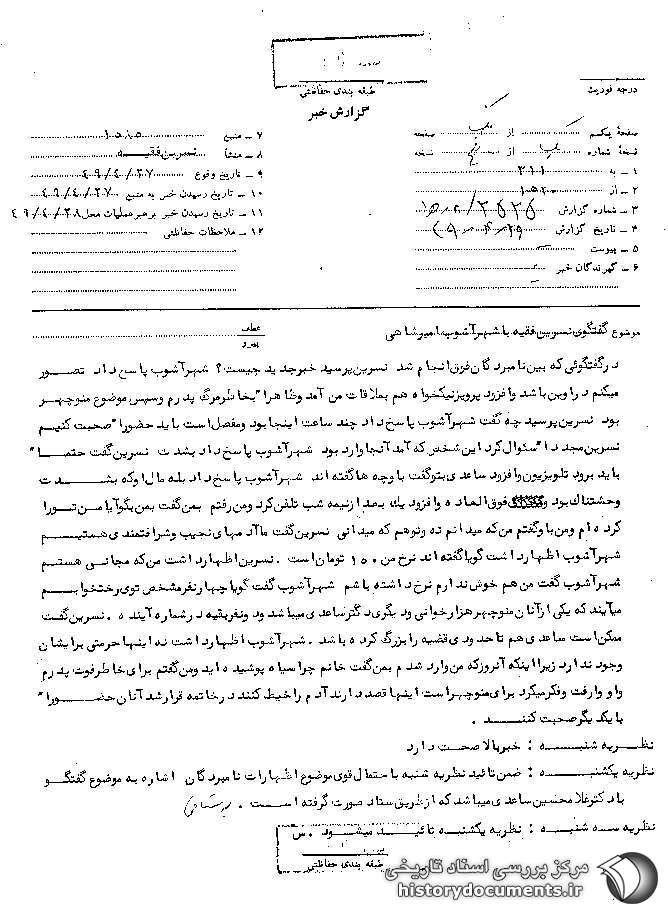 طبقه بندی حفاظتی
درجه فوریت
گزارش خبر
صفحهٔ یکم از یک صفحه
نسخهٔ شماره از نسخه
۱ - به ۳۱۱
۲ - از
۳ - شماره گزارش
۴ - تاریخ گزارش
۵ - پیوست
۶ - گیرندگان خبر
۷ - منبع ۱۰۵۸۵
۸ - منشأ نسرین فقیه
۹ - تاریخ وقوع ۴۹/۴/۲۷
۱۰ - تاریخ رسیدن خبر به منبع ۴۹/۴/۲۷
۱۱ - تاریخ رسیدن خبر برهبر عملیات محل ۴۹/۴/۲۸
۱۲ - ملاحظات حفاظتی
موضوع گفتگوی نسرین فقیه با شهرآشوب امیرشاهی
عطف
پیرو
در گفتگوئی که بین نامبردگان فوق انجام شد نسرین پرسید خبر جدید چیست؟ شهرآشوب پاسخ داد تصور
میکنم در اوین باشد و افزود پرویز نیکخواه هم بملاقات من آمد و ظاهرا" بخاطر مرگ پدرم و سپس موضوع منوچهر
بود نسرین پرسید چه گفت شهرآشوب پاسخ داد چند ساعت اینجا بود و مفصل است باید حضورا" صحبت کنیم
نسرین مجددا" سئوال کرد این شخص که آمد آنجا وارد بود شهرآشوب پاسخ داد بشدت نسرین گفت حتما"
باید برود تلویزیون و افزود ساعدی بتو گفت با و چه ها گفته اند شهرآشوب پاسخ داد بله مال او که بشدت
وحشتناک بود و فوق العاده و افزود یک بعد از نیمه شب تلفن کرد و من رفتم بمن گفت بمن بگو آیا من ترا
کرده ام و من با و گفتم من که میدانم نه و تو هم که میدانی نسرین گفت ما آدمهای نجیب و شرافتمندی هستیم
شهرآشوب اظهار داشت گویا گفته اند نرخ من ۱۵۰ تومان است . نسرین اظهار داشت من که مجانی هستم
شهرآشوب گفت من هم خوش ندارم نرخ داشته باشم شهرآشوب گفت گویا چهار نفر مشخص توی رختخوابم
میآیند که یکی از آنان منوچهر هزارخانی و دیگری دکتر ساعدی میباشد و دو نفر بقیه در شماره آینده . نسرین گفت
ممکن است ساعدی هم تا حدودی قضیه را بزرگ کرده باشد . شهرآشوب اظهار داشت نه اینها حرمتی برایشان
وجود ندارد زیرا اینکه آنروز که من وارد شدم بمن گفت خانم چرا سیاه پوشیده اید و من گفتم برای خاطر فوت پدرم
و او وارفت و فکر میکرد برای منوچهر است اینها قصد دارند آدم را خیط کنند در خاتمه قرار شد آنان حضورا"
با یکدیگر صحبت کنند .
نظریه شنبه : خبر بالا صحت دارد
نظریه یکشنبه : ضمن تائید نظریه شنبه با احتمال قوی موضوع اظهارات نامبردگان اشاره به موضوع گفتگو
با دکتر غلامحسین ساعدی میباشد که از طریق ستاد صورت گرفته است .
نظریه سه شنبه : نظریه یکشنبه تائید میشود . س
طبقه بندی حفاظتی
مرکز بررسی اسناد تاریخی
historydocuments.ir